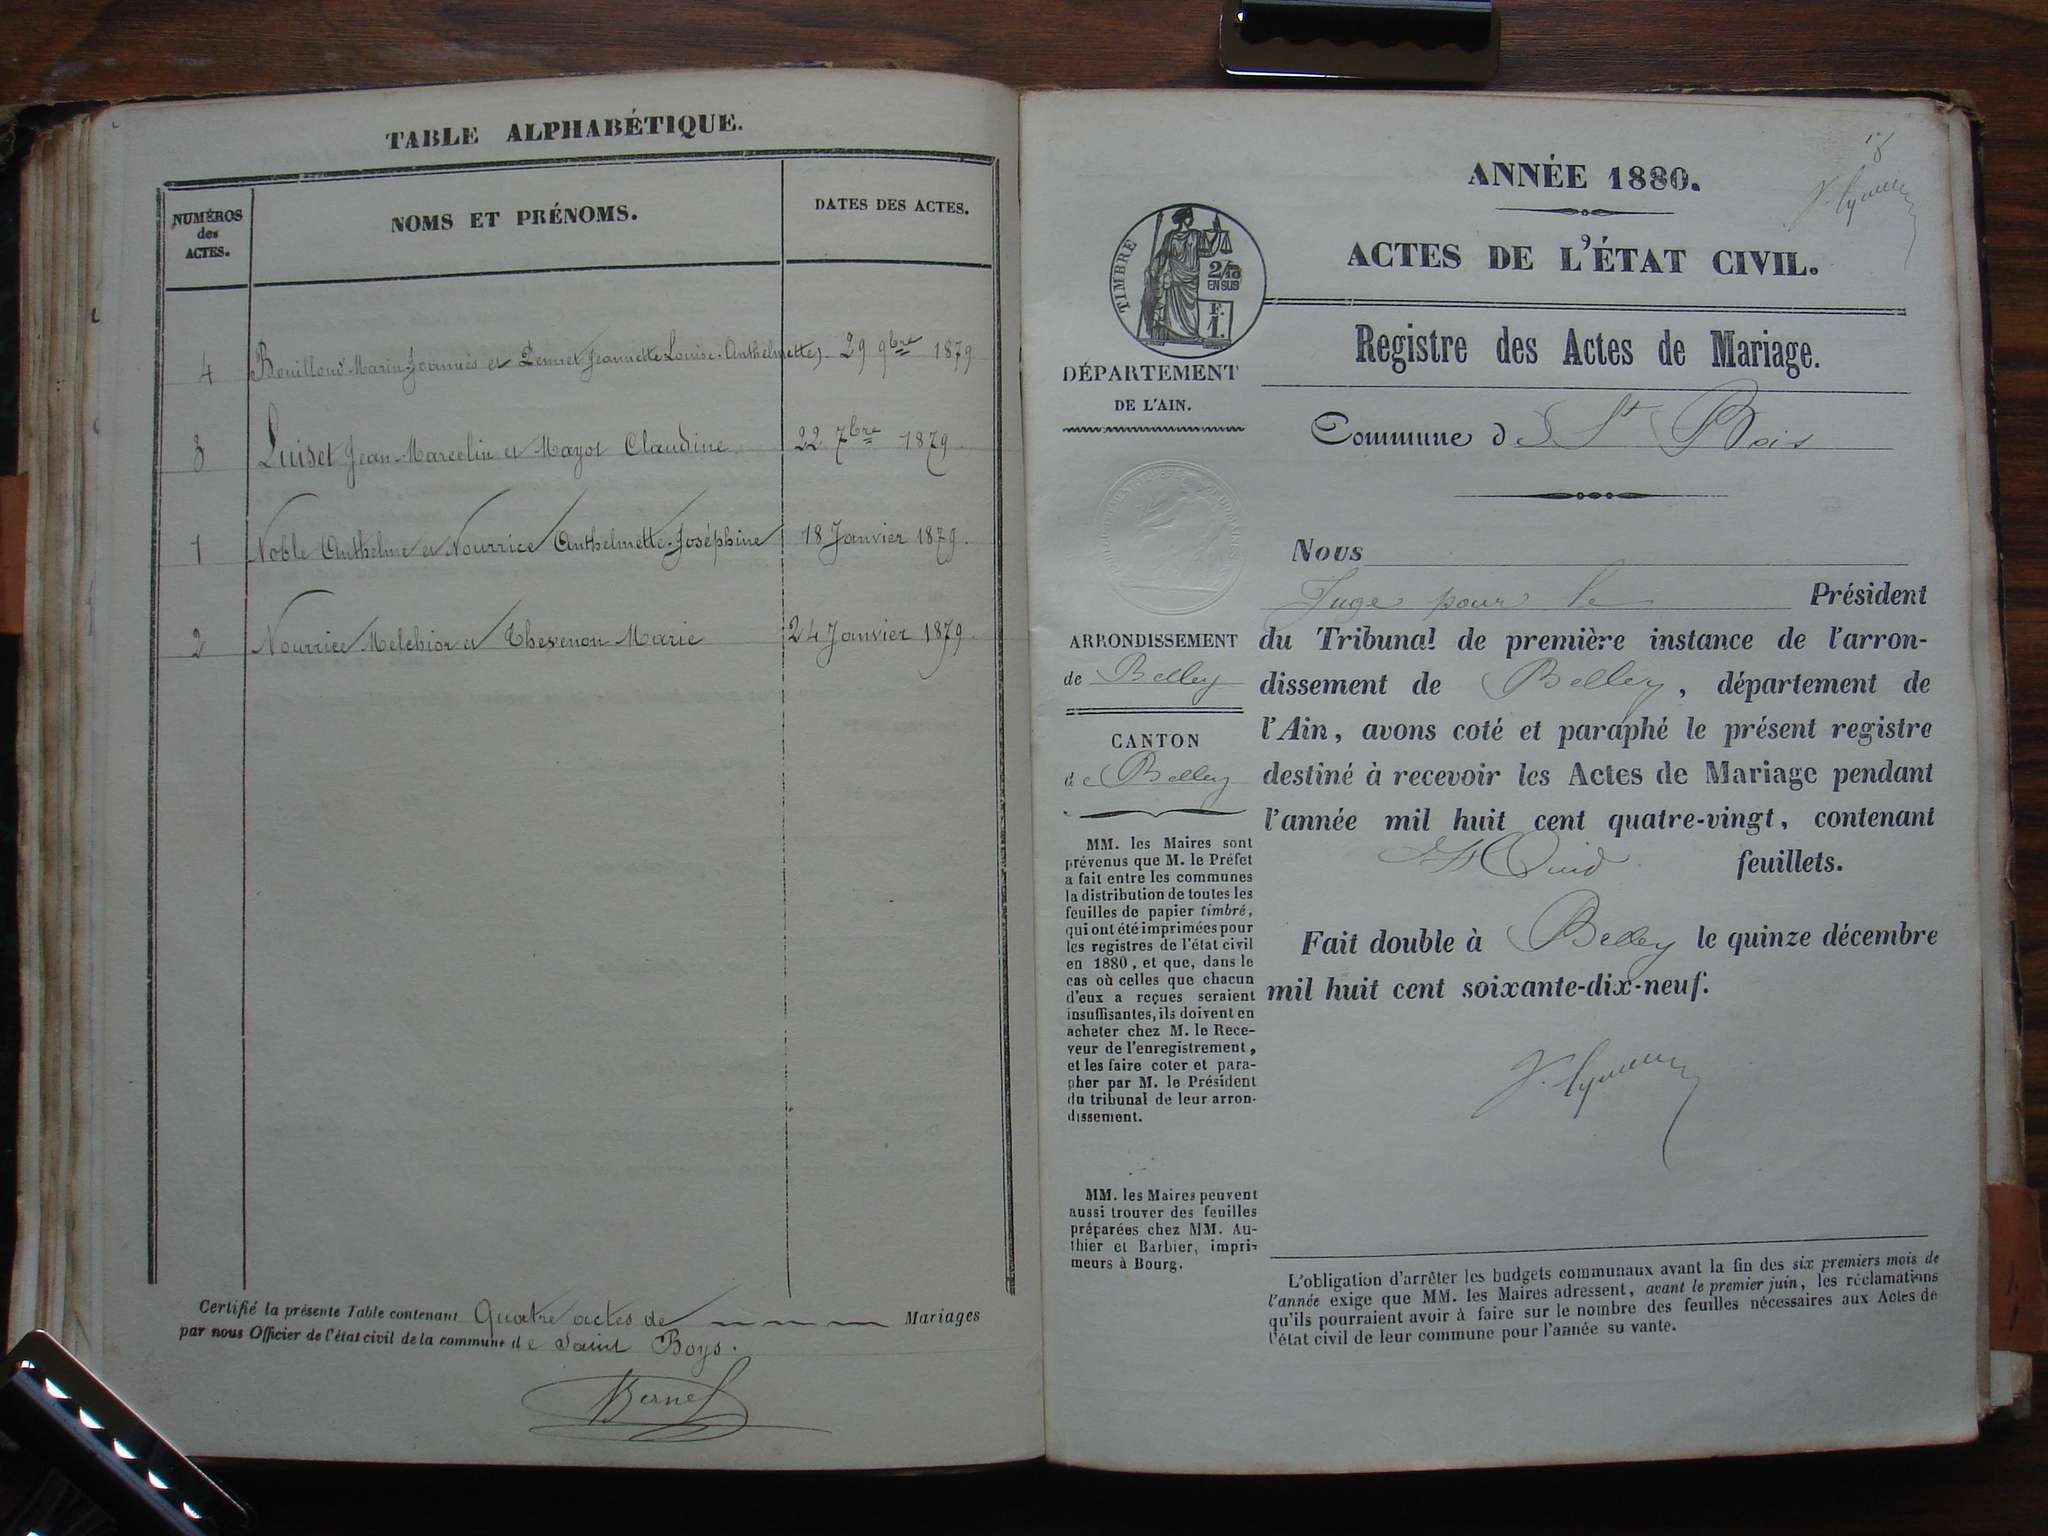 TABLE ALPHABÉTIQUE.
NUMÉROS
des
ACTES.
NOMS ET PRÉNOMS.
DATES DES ACTES.
4 Bouillond Marin-Joannès et Jeannette Louise-Anthelmette). 29 9bre 1879
3 Luiset Jean-Marcelin et Mayot Claudine 22 7bre 1879
1 Noble Anthelme et Nourrice Anthelmette-Joséphine 18 Janvier 1879.
2 Nourrice Melchior et Thevenon Marie 24 Janvier 1879.
Certifié la présente Table contenant Quatre actes de Mariages
par nous Officier de l'état civil de la commune de Saint Boys.
ANNÉE 1880.
ACTES DE L'ÉTAT CIVIL.
TIMBRE
2/10
EN SUS
F.
1.
Registre des Actes de Mariage.
DÉPARTEMENT
DE L'AIN.
Commune de St Bois
Nous
Juge pour le Président
du Tribunal de première instance de l'arron-
dissement de Belley, département de
l'Ain, avons coté et paraphé le présent registre
destiné à recevoir les Actes de Mariage pendant
l'année mil huit cent quatre-vingt, contenant
feuillets.
Fait double à Belley le quinze décembre
mil huit cent soixante-dix-neuf.
ARRONDISSEMENT
de Belley
CANTON
de Belley
MM. les Maires sont
prévenus que M. le Préfet
a fait entre les communes
la distribution de toutes les
feuilles de papier timbré,
qui ont été imprimées pour
les registres de l'état civil
en 1880, et que, dans le
cas où celles que chacun
d'eux a reçues seraient
insuffisantes, ils doivent en
acheter chez M. le Rece-
veur de l'enregistrement,
et les faire coter et para-
pher par M. le Président
du tribunal de leur arron-
dissement.
MM. les Maires peuvent
aussi trouver des feuilles
préparées chez MM. Au-
thier et Barbier, impri-
meurs à Bourg.
L'obligation d'arrêter les budgets communaux avant la fin des six premiers mois de
l'année exige que MM. les Maires adressent, avant le premier juin, les réclamations
qu'ils pourraient avoir à faire sur le nombre des feuilles nécessaires aux Actes de
l'état civil de leur commune pour l'année su vante.